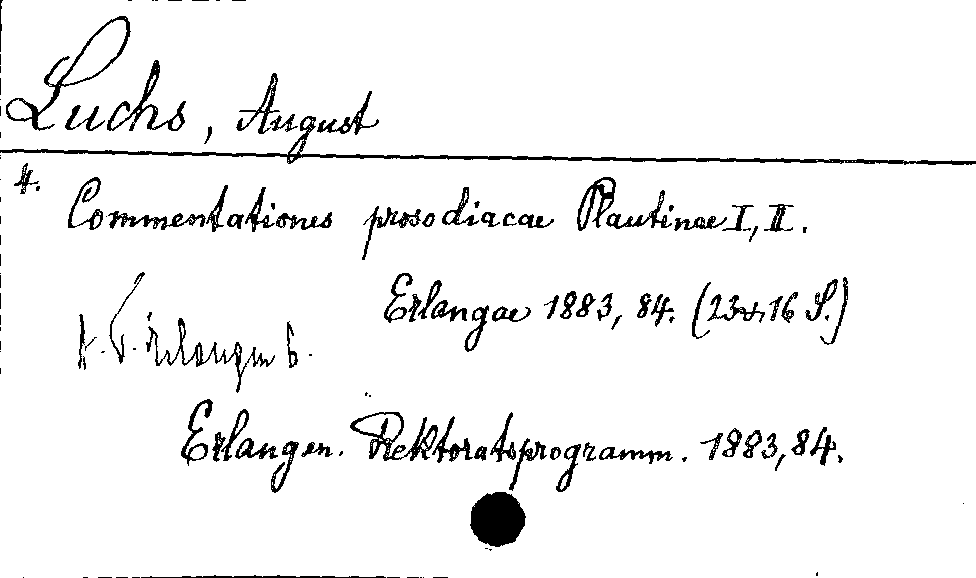 Luchs, August
4.
Commentationes prosodiacae Plautinae I, II.
Erlangae 1883, 84. (23 u. 16 S.)
Erlangen 6.
Erlangen. Rektoratsprogramm. 1883, 84.